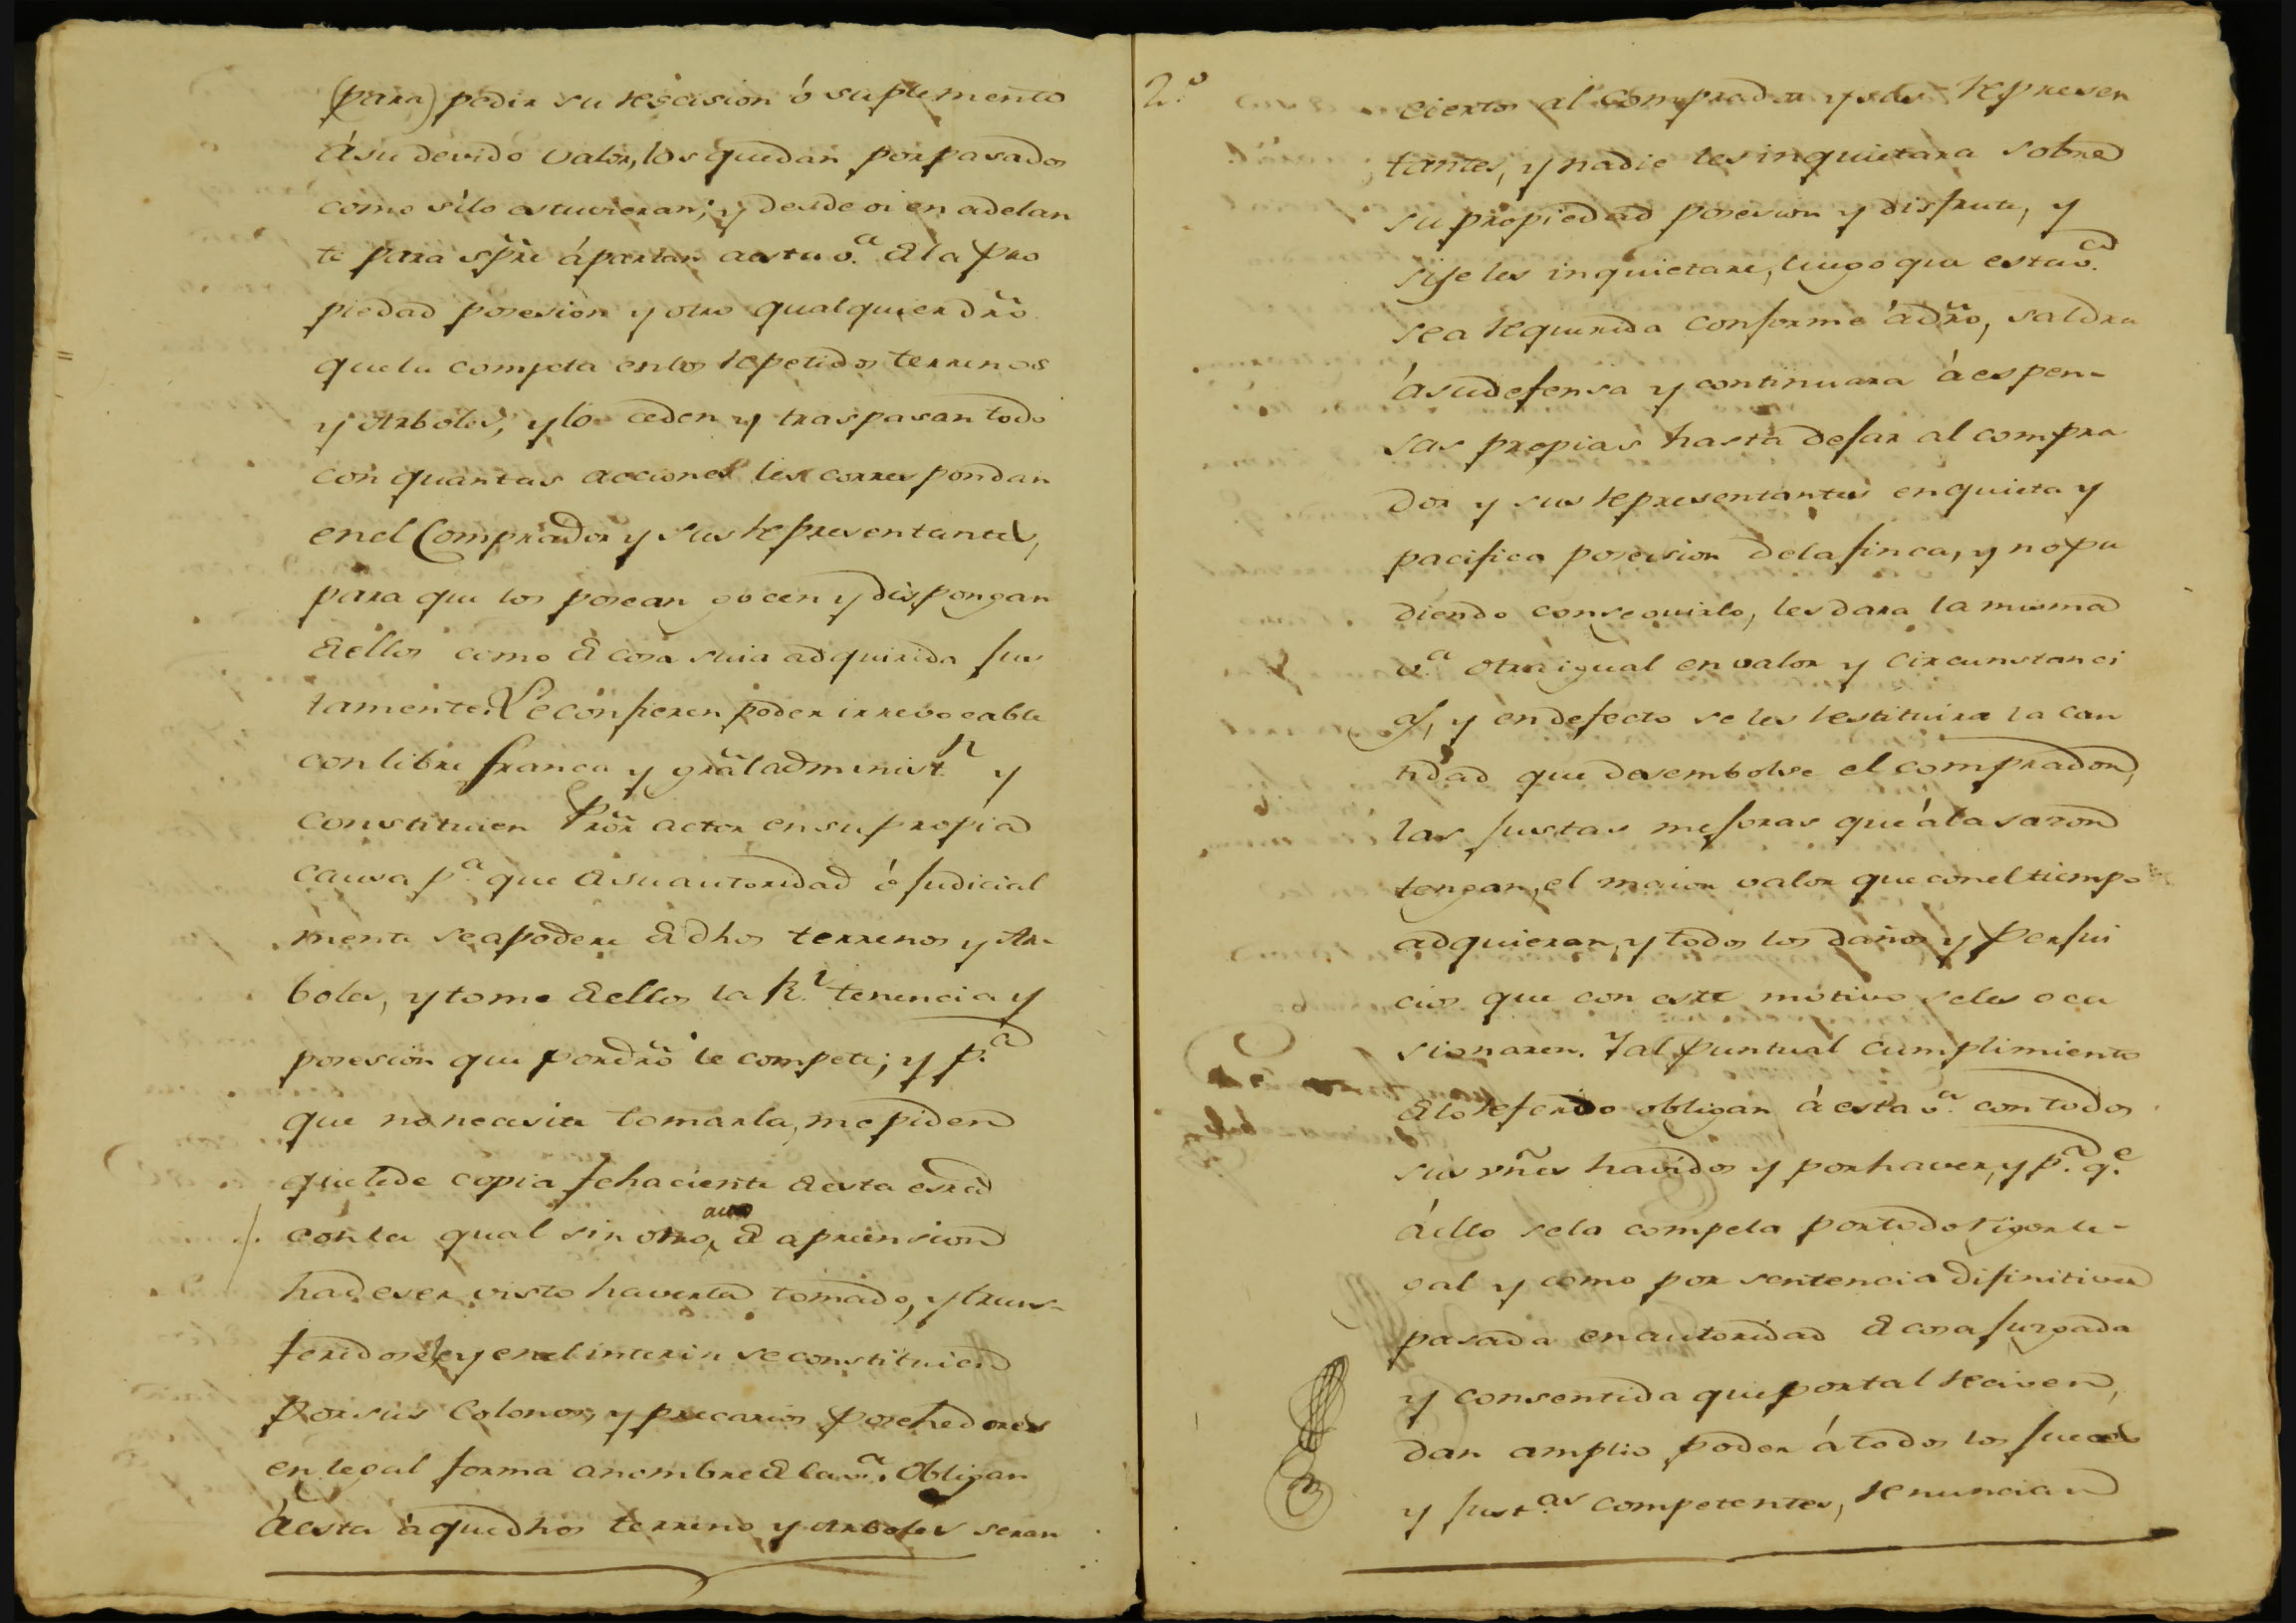 (para) pedir su rescision ó suplemento
á su devido valor, los quedan por pasados
como silo estuvieran; y desde oi en adelan
te para spre ápartan aesta v.ª de la pro
piedad posesion y otro qualquier dro
que la competa enlos repetidos terrenos
y Arboles, y lo ceden y traspasan todo
con quantas acciones les correspondan
en el Comprador y sus representantes,
para que los posean gocen y dispongan
de ellos como de cosa suia adquirida jus
tamente. Le confieren poder irrevocable
con libre franca y gral administ.n y
constituien Pror actor en su propia
causa p.ª que de su autoridad ó judicial
mente se apodere de dhos terrenos y Ar-
boles, y tome de ellos la R.l tenencia y
posesion que por dro le compete; y p.ª
que no necesite tomarla, me piden
que le de copia fehaciente de esta esra
con la qual sin otro acto de apriension
ha de ser visto haverla tomado, y trans-
feridosele y en el interin se constituien
por sus Colonos, y precarios posehedores
en legal forma a nombre de la v.ª Obligan
á esta á que dhos terreno y Arboles seran
2.º
ciertos al comprador y sus represen
tantes, y nadie les inquietara sobre
su propiedad posesion y disfrute, y
si se les inquietare, luego que esta v.ª
sea requirida conforme á dro, saldra
á su defensa y continuara á espen-
sas propias hasta dejar al compra
dor y sus representantes en quieta y
pacifica posesion de la finca, y no pu
diendo conseguirlo, les dara la misma
v.ª otra igual en valor y circunstanci
as, y en defecto se les restituira la can
tidad que desembolse el comprador,
las justas mejoras que á la sazon
tengan, el maior valor que con el tiempo
adquieran, y todos los daños y perjui
cios que con este motivo seles oca
sionaren. Y al puntual cumplimiento
de lo referido obligan á esta v.ª con todos
sus vnes havidos y por haver, y p.ª q.e
á ello sela compela por todo rigor le-
gal y como por sentencia difinitiva
pasada en autoridad de cosa juzgada
y consentida que por tal reciven,
dan amplio poder á todos los jueces
y just.as competentes, renuncian